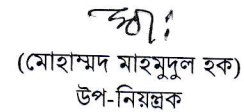 স্বা:
(মোহাম্মদ মাহমুদুল হক)
উপ-নিয়ন্ত্রক